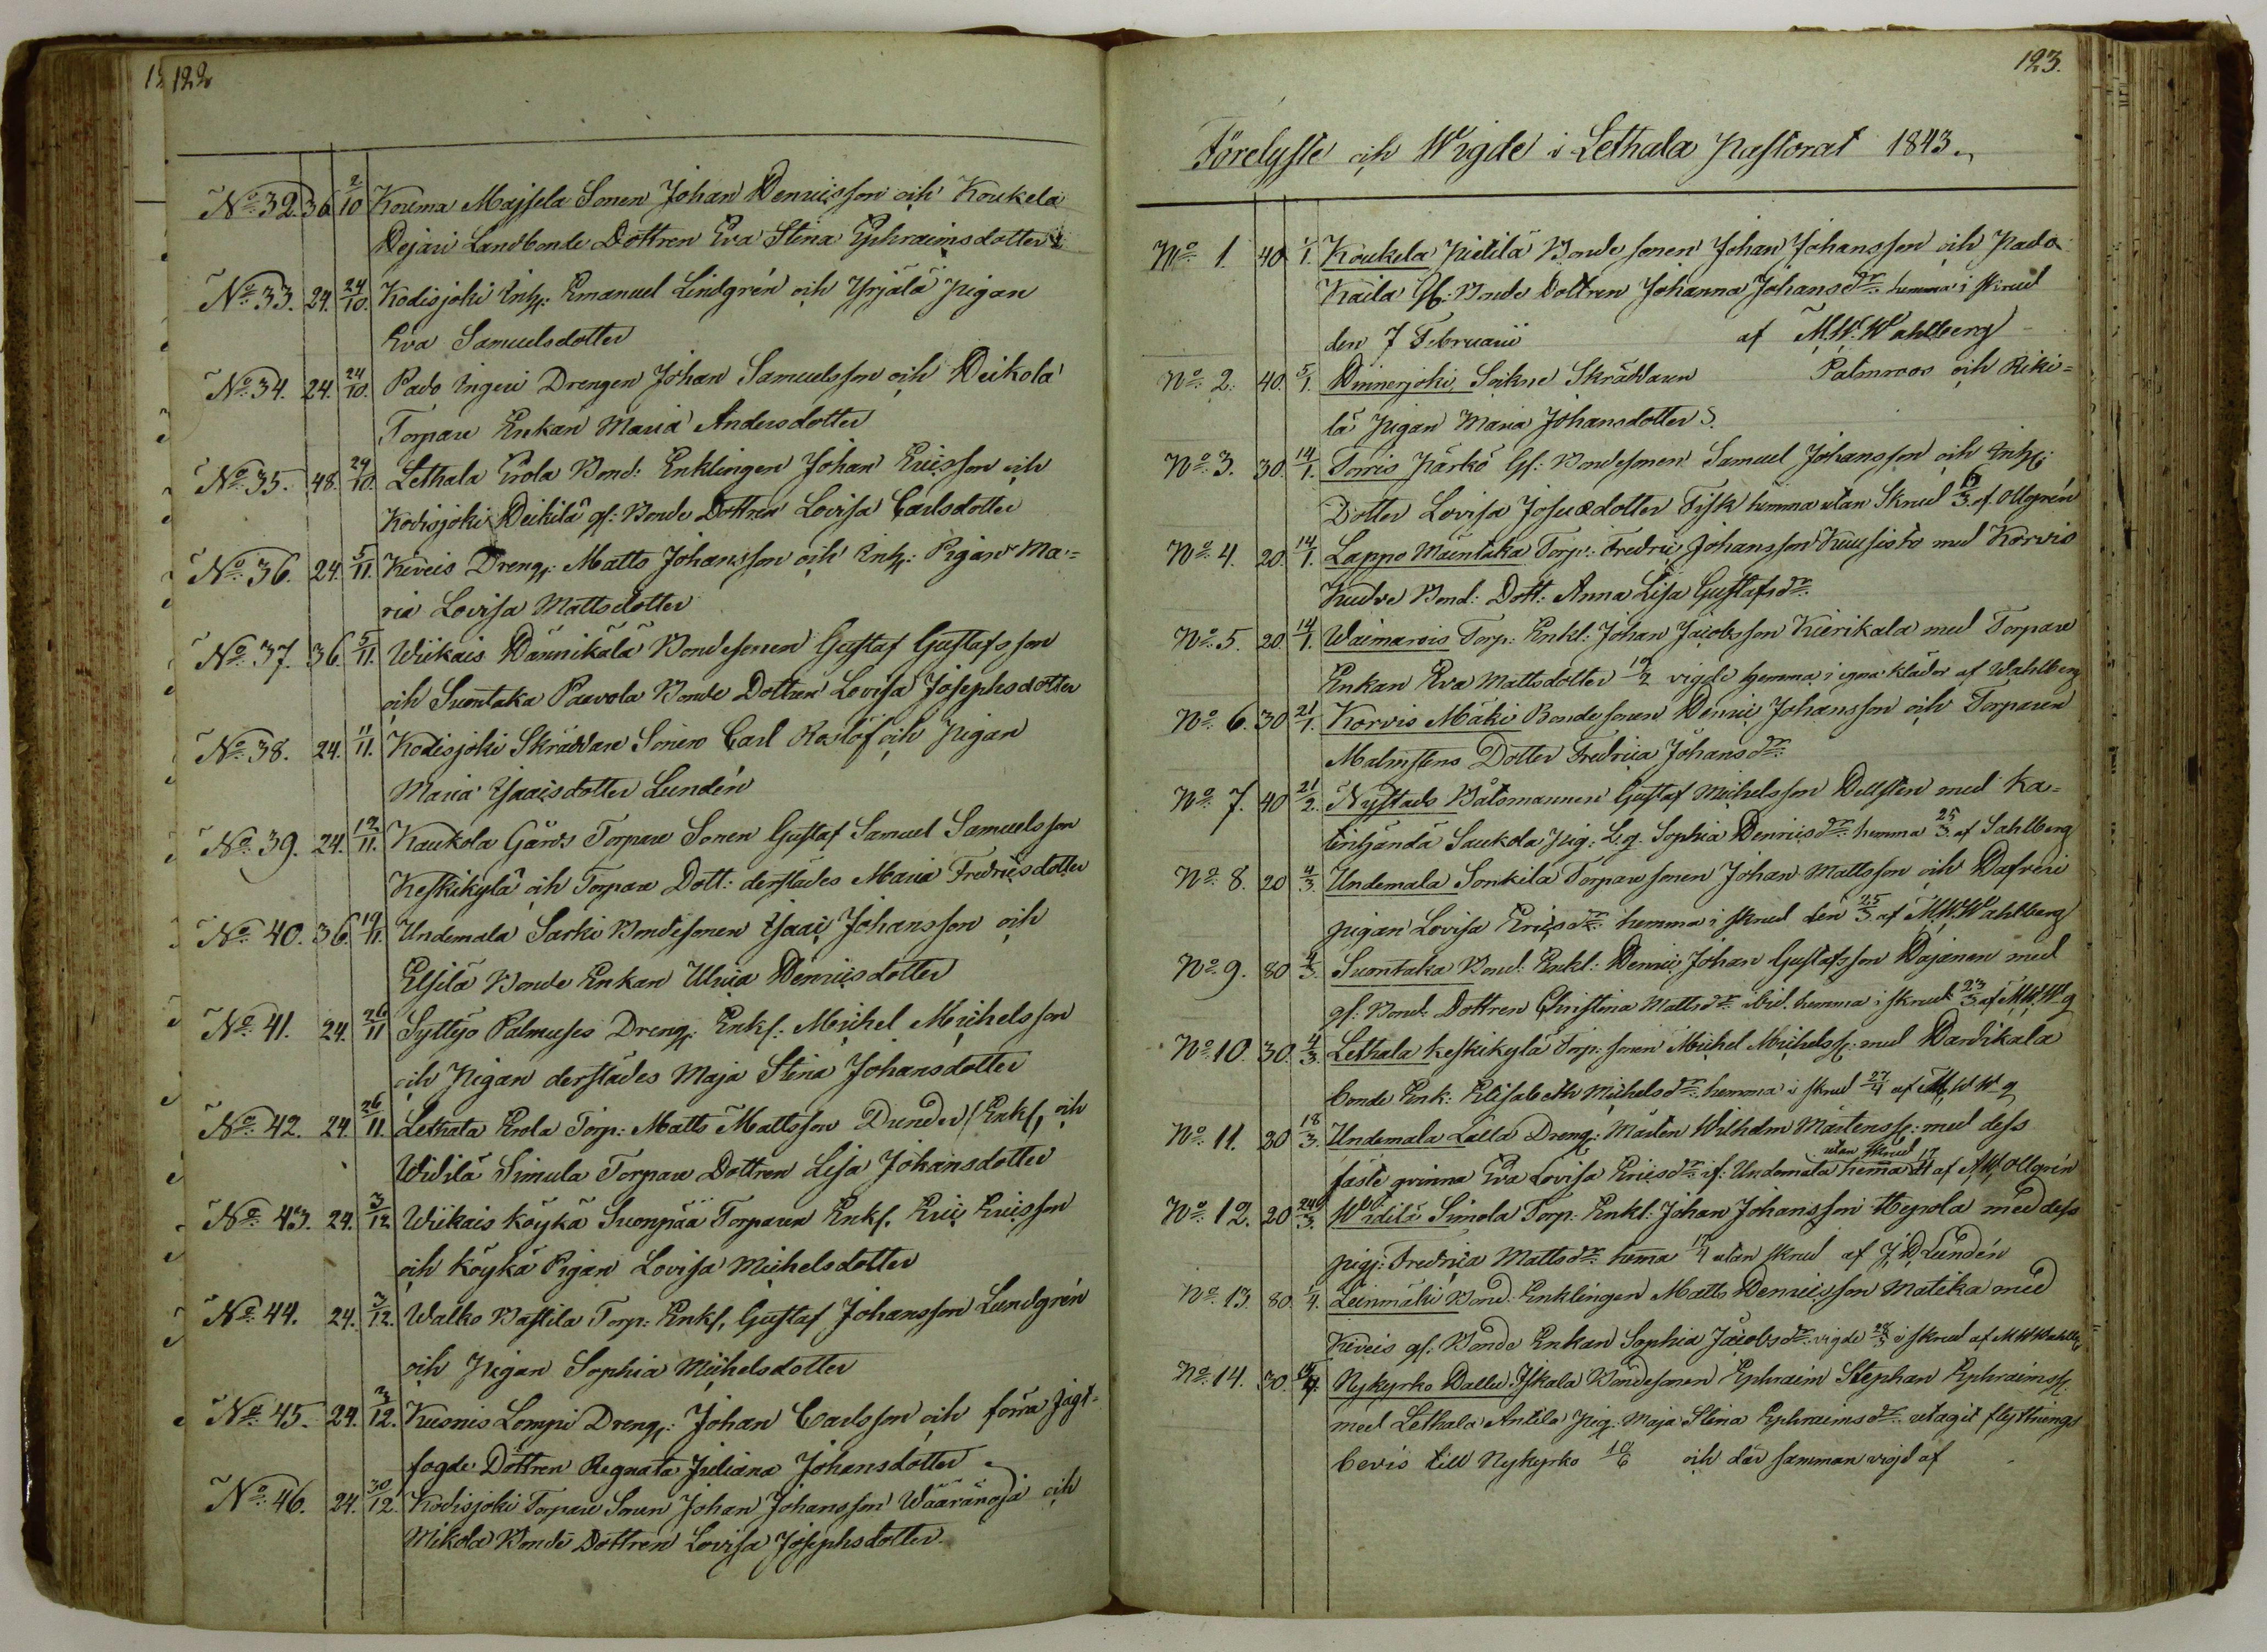 122
No 32. 36 2/10 Kouma Majsela Sonen Johan Henricsson och Koukela
Hejari Landbonde Dottren Eva Stina Ephraimsdotter
No 33. 24. 24/10. Kodisjoki Inh: Emanuel Lindgrén och Yrjälä Pigan
Eva Samuelsdotter
No 34. 24. 24/10. Pado Ingeri Drengen Johan Samuelsson och Heikola
Torpare Enkan Maria Andersdotter
No 35. 48. 24/10. Lethala Erola Bond: Enklingen Johan Ericsson och
Kodisjoki Heikilä gl: Bonde Dottren Lovisa Carlsdotter
No 36. 24. 5/11. Kiveis Dreng: Matts Johansson och Inh: Pigan Ma=
ria Lovisa Mattsdotter
No 37. 36. 5/11. Wiikais Hännikälä Bondesonen Gustaf Gustafsson
och Suontaka Paavola Bonde Dottren Lovisa Josephsdotter
No 38. 24. 11/11. Kodisjoki Skräddare Sonen Carl Roslöf och Pigan
Maria Isaacsdotter Lundén
No 39. 24. 12/11. Kaukola Gårds Torpare Sonen Gustaf Samuel Samuelsson
Keskikylä och Torpare Dott: derstädes Maria Fredricsdotter
No 40. 36. 19/11. Undemala Sarki Bondesonen Isaac Johansson och
Elsilä Bonde Enkan Ulrica Henricsdotter
No 41. 24. 26/11 Syttyo Palmuses Dreng: Enkl. Michel Michelsson
och Pigan derstädes Maja Stina Johansdotter
No 42. 24. 26/11. Lethala Erola Torp: Matts Mattsson Dunder (Enkl, och
Widilä Simula Torpare Dottren Lisa Johansdotter
No 43. 24. 3/12 Wiikais Köykä Suonpää Torparen Enkl. Eric Ericsson
och Köykä Pigan Lovisa Michelsdotter
No 44. 24. 3/12. Walko Wastila Torp: Enkl, Gustaf Johansson Lundgrén
och Pigan Sophia Michelsdotter
No 45. 24. 3/12. Kusnis Lempi Dreng: Johan Carlsson och förra Jagt=
fogde Dottren Regnata Juliana Johansdotter
No 46. 24. 30/12. Kodisjoki Torpare Sonen Johan Johansson Wääränoja och
Mikola Bonde Dottren Lovisa Josephsdotter
123.
Förelyste och Wigde i Lethala Pastorat 1843.
No 1. 40. 1/1. Koukela Pietilä Bonde sonen Johan Johansson och Pado
Kaila gl: Bonde Dottren Johanna Johansdr. hemma i skrud
den 7 Februarii af M.W. Wahlberg
No 2. 40. 5/1. Hinnerjoki, Soikne Skräddaren Palmroos och Riki=
lä Pigan Maria Johansdotter
No 3. 30. 14/1. Torris Pärkö Gl: Bondesonen Samuel Johansson och Inh:
Dotter Lovisa Josuædotter Fisk hemma utan Skrud af Ollgrén
No 4. 20. 14/1. Lappo Mäentaka Torp: Fredric Johansson Kuusisto med Korvis
Kudve Bond: Dott: Anna Lisa Gustafsdr.
No 5. 20. 14/1. Waimarois Torp: Enkl: Johan Jacobsson Kierikala med Torpare
Enkan Eva Mattsdotter vigde hemma i egna kläder af Wahlberg
No 6. 30. 21/1. Korvis Mäki Bondesonen Henric Johansson och Torparen
Malmstens Dotter Fredrica Johansdr:
No 7. 40 21/2. Nystads Båtsmannen Gustaf Michelsson Hellsten med Ka=
tinhändä Saukola Pig: L.g. Sophia Henricsdr: hemma 25/3 af Sahlberg
No 8. 20 4/3. Undemala Sonkila Torpare sonen Johan Mattsson och Hafveri
Pigan Lovisa Ericsdr: hemma i skrud den 25/3 af M.W. Wahlberg
No 9. 80 4/3. Suontaka Bond: Enkl: Henric Johan Gustafsson Hajanen med
gl: Bond: Dottren Christina Mattsdr: ibid. hemma i skrud 23/3 af M.W.Wg
No 10. 30. 4/3. Lethala Keskikylä Torp: sonen Michel Michelss: med Hardikala
bonde Enk: Elisabeth Michelsdr: hemma i skrud 27/4 af M.W Wg
No 11. 30 18/3. Undemala Lalla Dreng: Mårten Wilhelm Mårtenss: med dess
utan skrud
fäste qvinna Eva Lovisa Ericsdr: if: Undemala hemma af A.W. Ollgrén
No 12. 20 24/3. Widilä Simola Torp: Enkl: Johan Johansson Hepola med dess
pig: Fredrica Mattsdr: hema 17/4 utan skrud af J. D Lundén
No 13. 80. 1/4. Leinmäki Bond: Enklingen Matts Henricsson Matika med
Kiveis gl: Bonde Enkan Sophia Jacobsdr: vigde 28/5 i skrud af M W Wahlbg
No 14. 30. Nykyrko Hallu Iskala Bondesonen Ephraim Stephan Ephraimss:
med Lethala Antila Pig: Maja Stina Ephraimsdr: uttagit flyttnings
bevis till Nykyrko 10/6 och där samman vigd af